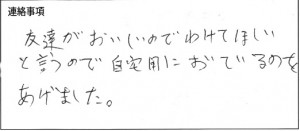 連絡事項
友達がおいしいのでわけてほしい
と言うので自宅用においているのを
あげました。